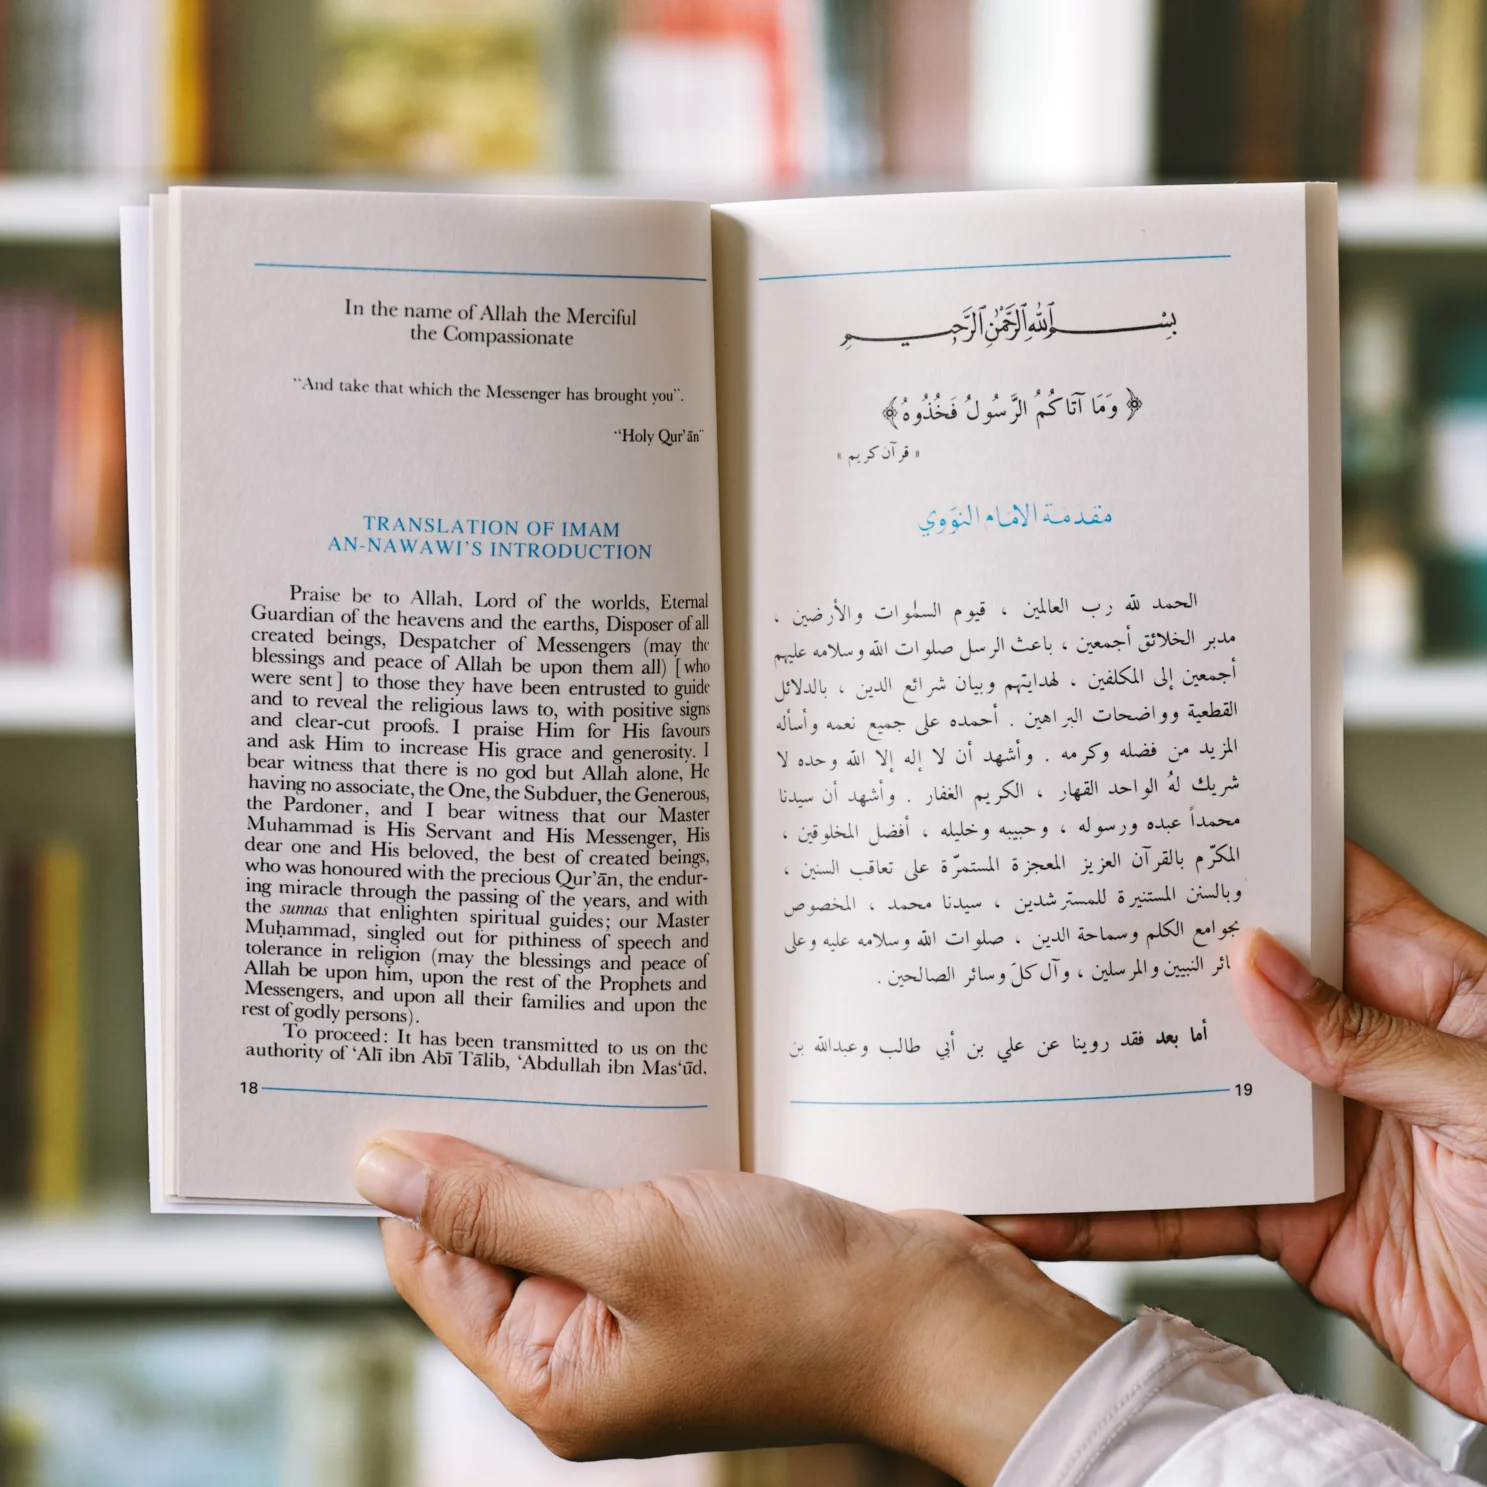 In the name of Allah the Merciful
the Compassionate
“And take that which the Messenger has brought you”.
“Holy Qur’ān”
TRANSLATION OF IMAM
AN-NAWAWI’S INTRODUCTION
Praise be to Allah, Lord of the worlds, Eternal
Guardian of the heavens and the earths, Disposer of all
created beings, Despatcher of Messengers (may the
blessings and peace of Allah be upon them all) [who
were sent] to those they have been entrusted to guide
and to reveal the religious laws to, with positive signs
and clear-cut proofs. I praise Him for His favours
and ask Him to increase His grace and generosity. I
bear witness that there is no god but Allah alone, He
having no associate, the One, the Subduer, the Generous,
the Pardoner, and I bear witness that our Master
Muhammad is His Servant and His Messenger, His
dear one and His beloved, the best of created beings,
who was honoured with the precious Qur’ān, the endur-
ing miracle through the passing of the years, and with
the sunnas that enlighten spiritual guides; our Master
Muḥammad, singled out for pithiness of speech and
tolerance in religion (may the blessings and peace of
Allah be upon him, upon the rest of the Prophets and
Messengers, and upon all their families and upon the
rest of godly persons).
To proceed: It has been transmitted to us on the
authority of ‘Alī ibn Abī Tālib, ‘Abdullah ibn Mas‘ūd,
18
بِسْمِ ٱللَّهِ ٱلرَّحْمَٰنِ ٱلرَّحِيمِ
﴿ وَمَا آتَاكُمُ الرَّسُولُ فَخُذُوهُ ﴾
« قرآن كريم »
مقدمة الامام النووي
الحمد لله رب العالمين ، قيوم السمٰوات والأرضين ،
مدبر الخلائق أجمعين ، باعث الرسل صلوات الله وسلامه عليهم
أجمعين إلى المكلفين ، لهدايتهم وبيان شرائع الدين ، بالدلائل
القطعية وواضحات البراهين . أحمده على جميع نعمه وأسأله
المزيد من فضله وكرمه . وأشهد أن لا إله إلا الله وحده لا
شريك لهُ الواحد القهار ، الكريم الغفار . وأشهد أن سيدنا
محمداً عبده ورسوله ، وحبيبه وخليله ، أفضل المخلوقين ،
المكرّم بالقرآن العزيز المعجزة المستمرّة على تعاقب السنين ،
وبالسنن المستنيرة للمسترشدين ، سيدنا محمد ، المخصوص
بجوامع الكلم وسماحة الدين ، صلوات الله وسلامه عليه وعلى
النبيين والمرسلين ، وآل كلّ وسائر الصالحين .
أما بعد فقد روينا عن علي بن أبي طالب وعبدالله بن
19